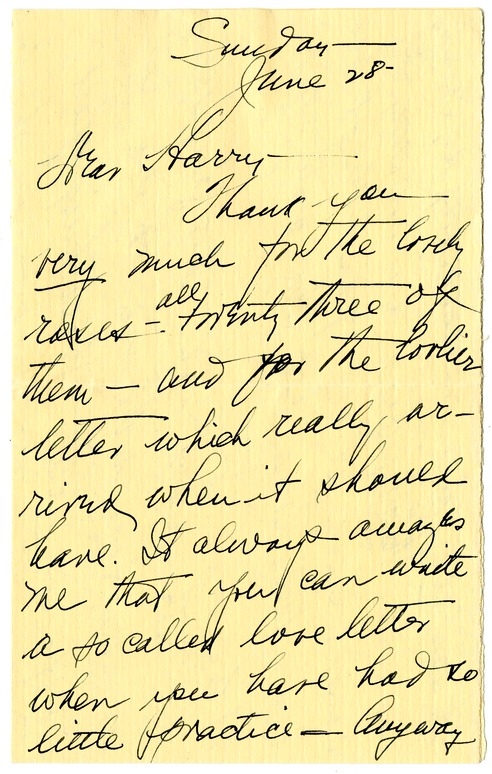 Sunday—
June 28-
Dear Harry—
Thank you—
very much for the lovely
roses - all twenty three of
them — and for the lovlier
letter which really ar-
rived when it should
have. It always amazes
me that you can write
a so called love letter
when you have had so
little practice — Anyway